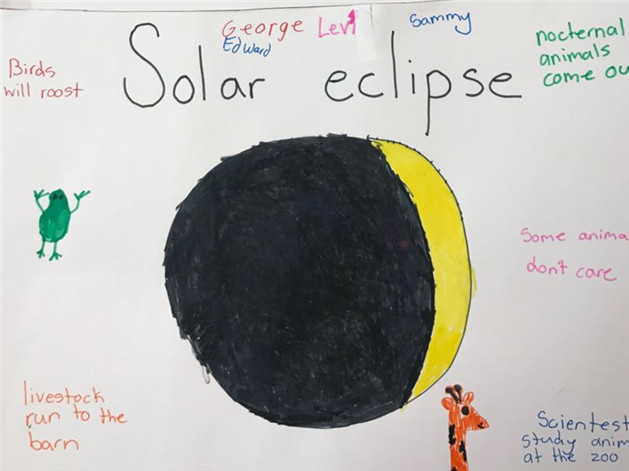 George
Levi
Sammy
Edward
Solar eclipse
nocternal
animals
come ou
Birds
will roost
Some anima
don't care
livestock
run to the
barn
Scientest
study anim
at the zoo